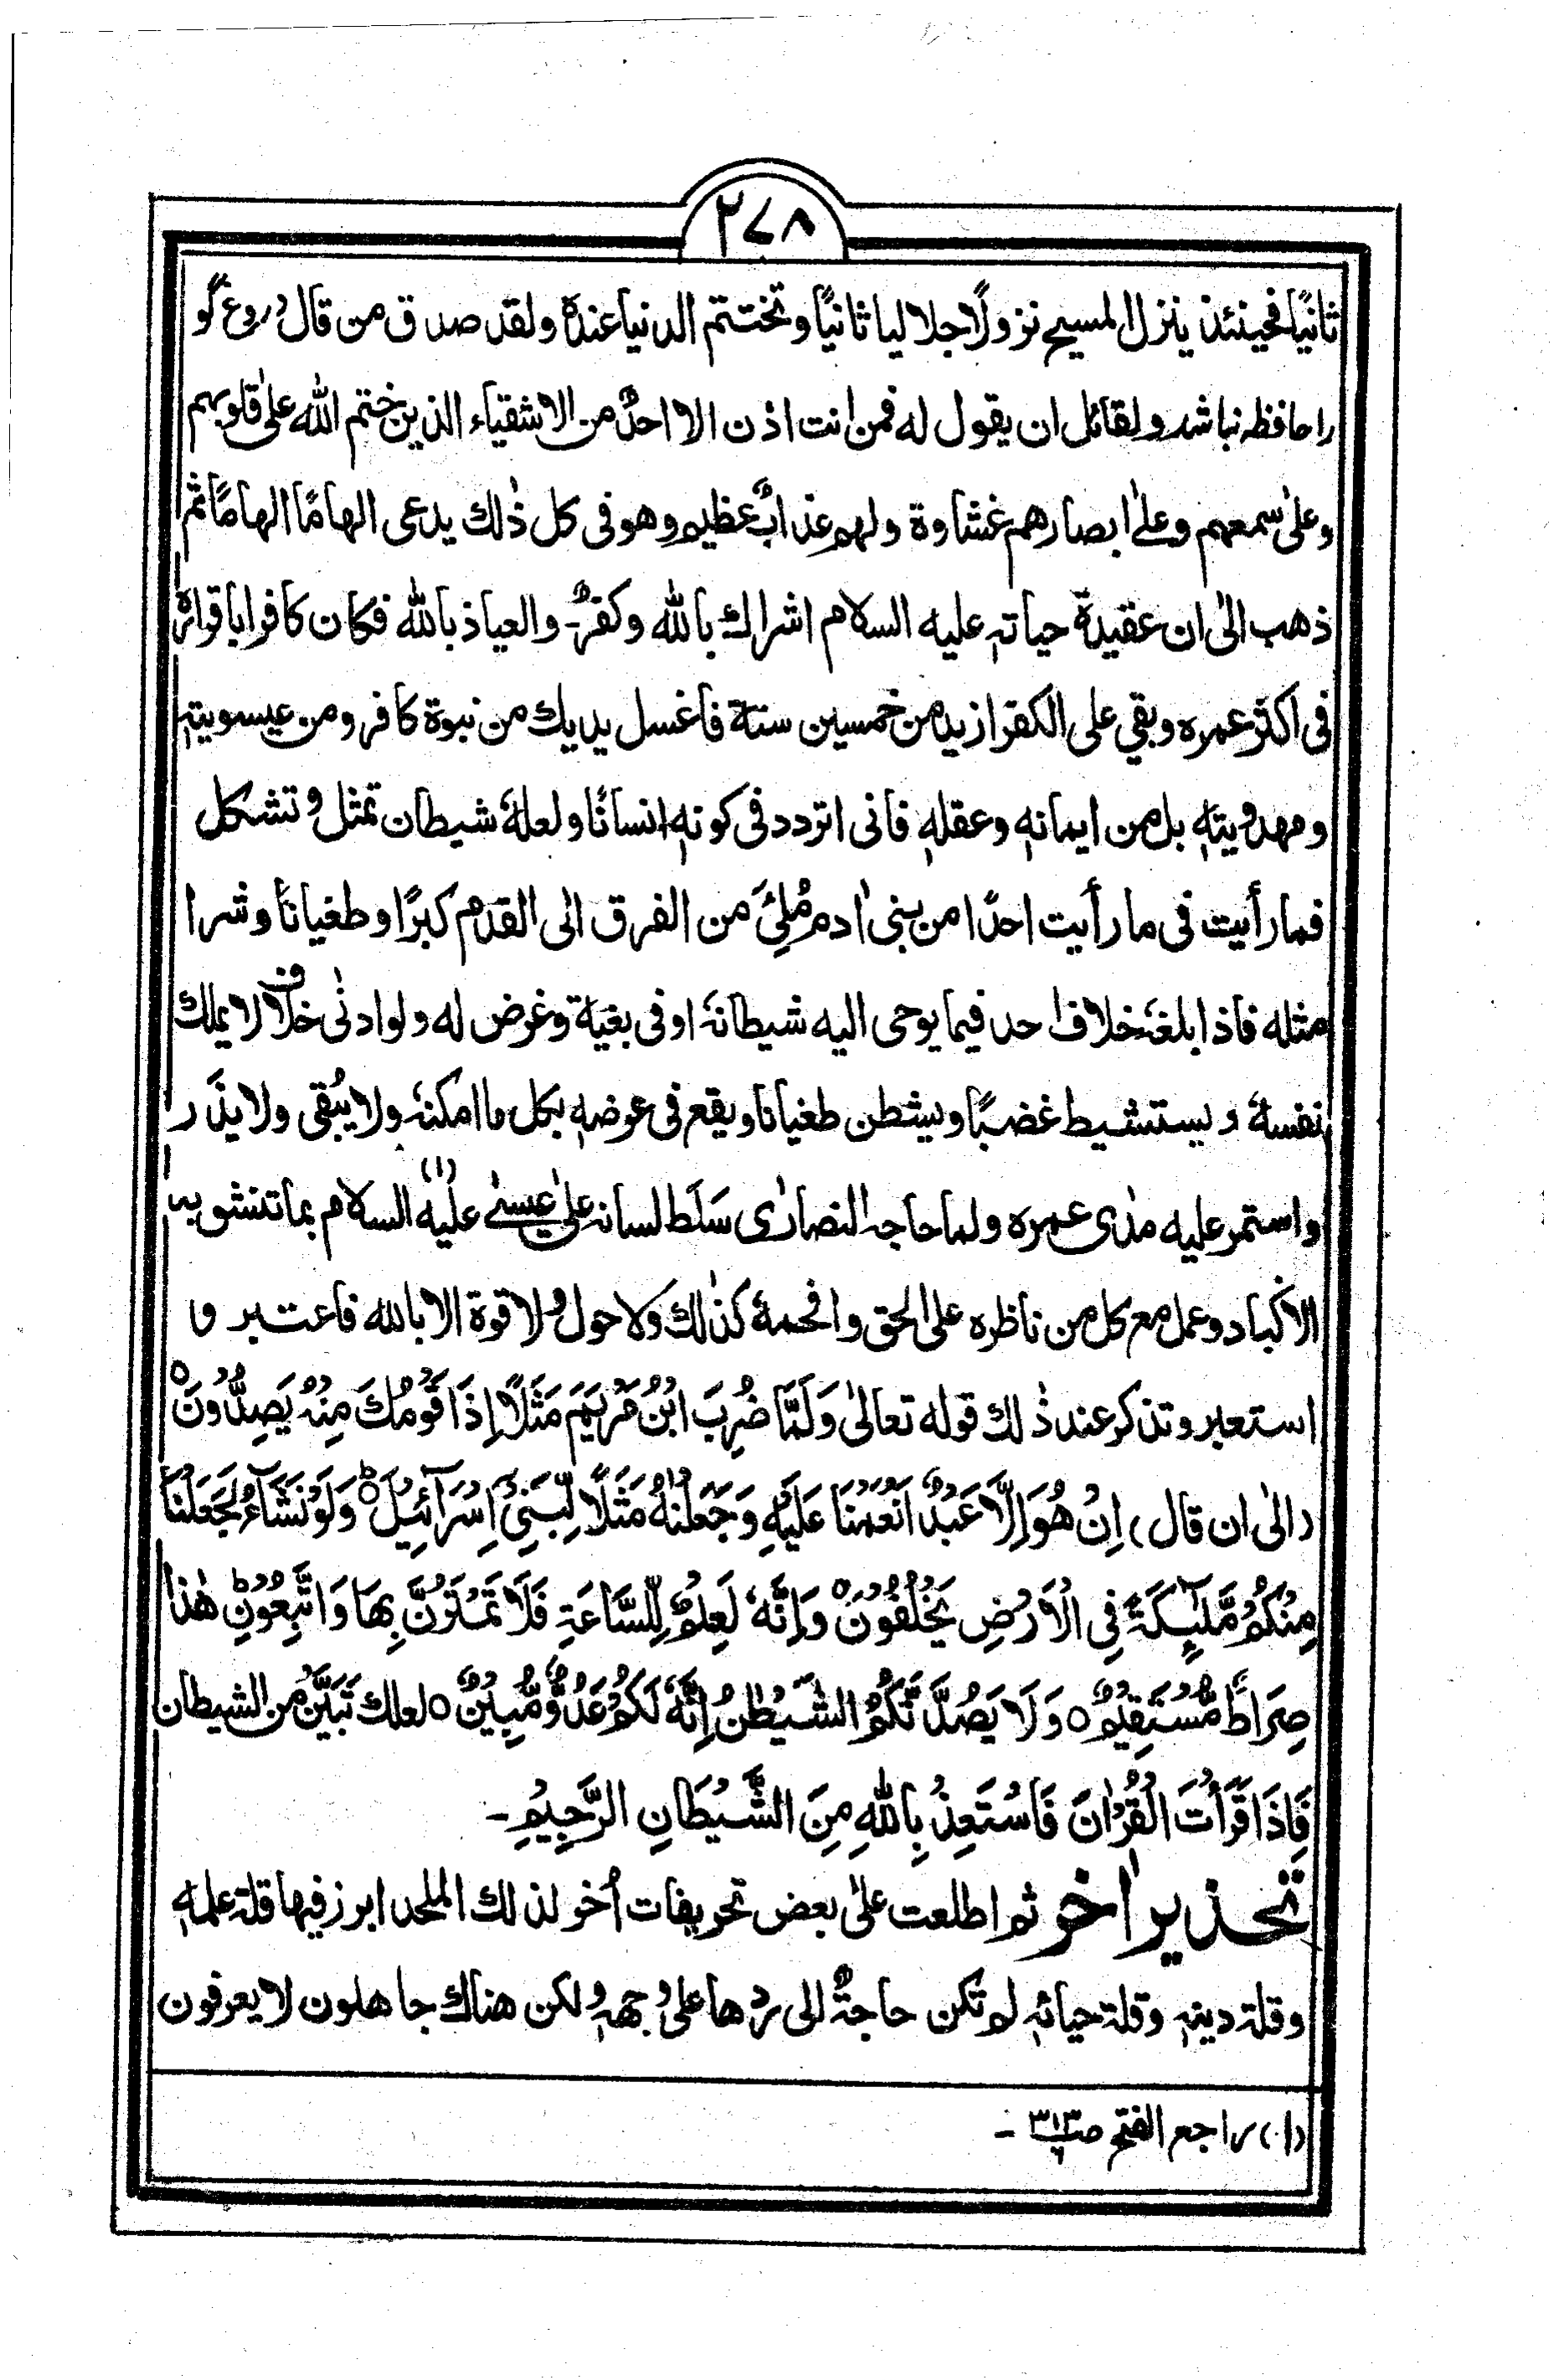 ٢٧٨
ثانيًا فحينئذ ينزل المسيح نزولًا جلاليا ثانيًا وتختتم الدنيا عندهٗ ولقد صدق من قال دروغ گو
را حافظہ نباشد ولقائل ان يقول له فمن انت اذن الا احدٌ من الاشقياء الذين ختم الله علىٰ قلوبهم
وعلىٰ سمعهم وعلےٰ ابصارهم غشاوة ولهم عذابٌ عظيم وهو فى كل ذٰلك يدعى الهامًا الهامًا ثم
ذهب الىٰ ان عقيدة حياتهٖ عليه السلام اشراك بالله وكفرٌ۔ والعياذ بالله فكان كافرا باقرارهٖ
فى اكثر عمره وبقي على الكفر ازيد من خمسين سنة فاغسل يديك من نبوة كافر ومن عيسويتهٖ
ومهدويتهٖ بل من ايمانهٖ وعقلهٖ فانى اتردد فى كونهٖ انسانًا ولعلهٗ شيطان تمثل و تشكل
فما رأيت فى ما رأيت احدًا من بنى اٰدم مُلِئَ من الفرق الى القدم كبرًا وطغيانًا وشرا
مثله فاذا بلغهٗ خلاف احد فيما يوحى اليه شيطانهٗ او فى بغية وغرض له ولو ادنٰى خلاف لا يملك
نفسهٗ و يستشيط غضبًا ويشطن طغيانا ويقع فى عرضهٖ بكل ما امكنهٗ ولا يُبقى ولا يذَر
واستمر عليه مدٰى عمره ولما حاجه النصارٰى سَلَّط لسانه علىٰ عيسىٰ عليه (١) السلام بما تنشو به
الاكباد وعمل مع كل من ناظره على الحق وافحمهٗ كذٰلك ولاحول ولا قوة الا بالله فاعتبر و
استعبر وتذكر عند ذٰلك قوله تعالىٰ وَلَمَّا ضُرِبَ ابْنُ مَرْيَمَ مَثَلًا إِذَا قَوْمُكَ مِنْهُ يَصِدُّوْنَ ○
(الىٰ ان قال) اِنْ هُوَ اِلَّا عَبْدٌ اَنْعَمْنَا عَلَيْهِ وَجَعَلْنٰهُ مَثَلًا لِّبَنِىْٓ اِسْرَآئِيْلَ ○ وَلَوْ نَشَآءُ لَجَعَلْنَا
مِنْكُمْ مَّلٰٓئِكَةً فِى الْاَرْضِ يَخْلُفُوْنَ ○ وَاِنَّهٗ لَعِلْمٌ لِّلسَّاعَةِ فَلَا تَمْتَرُنَّ بِهَا وَاتَّبِعُوْنِ هٰذَا
صِرَاطٌ مُّسْتَقِيْمٌ ○ وَلَا يَصُدَّنَّكُمُ الشَّيْطٰنُ اِنَّهٗ لَكُمْ عَدُوٌّ مُّبِيْنٌ ○ لعلك تَبَيَّنُ من الشيطان
فَاِذَا قَرَأْتَ الْقُرْاٰنَ فَاسْتَعِذْ بِاللهِ مِنَ الشَّيْطَانِ الرَّجِيْمِ۔
تحذير اٰخر ثم اطلعت علىٰ بعض تحريفات اُخر لذلك الملحد ابرز فيها قلة علمهٖ
وقلة دينهٖ وقلة حيائهٖ لم تكن حاجةٌ الى ردها على وجهه ولكن هناك جاهلون لا يعرفون
(١) راجع الفتح ص٣١٣ ۔